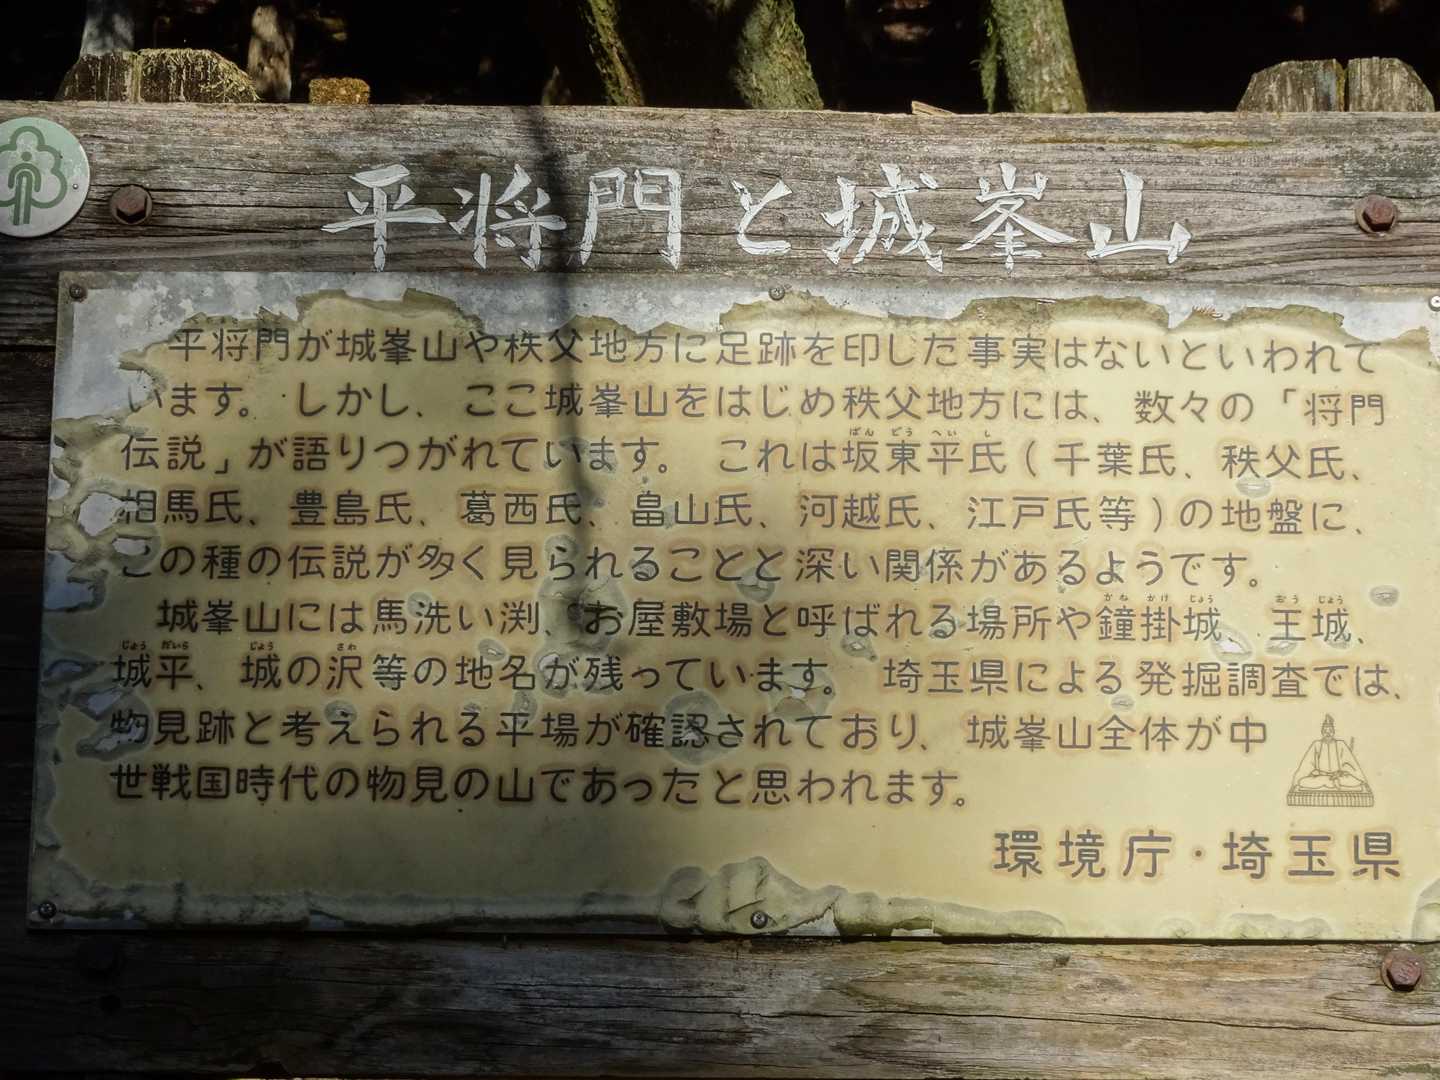 平将門と城峯山
平将門が城峯山や秩父地方に足跡を印した事実はないといわれて
います。しかし、ここ城峯山をはじめ秩父地方には、数々の「将門
伝説」が語りつがれています。これは坂東平氏(千葉氏、秩父氏、
ばん どう へい し
相馬氏、豊島氏、葛西氏、畠山氏、河越氏、江戸氏等)の地盤に、
この種の伝説が多く見られることと深い関係があるようです。
城峯山には馬洗い渕、お屋敷場と呼ばれる場所や鐘掛城、王城、
かね かけ じょう おう じょう
城平、城の沢等の地名が残っています。埼玉県による発掘調査では、
じょう だいら じょう さわ
物見跡と考えられる平場が確認されており、城峯山全体が中
世戦国時代の物見の山であったと思われます。
環境庁・埼玉県